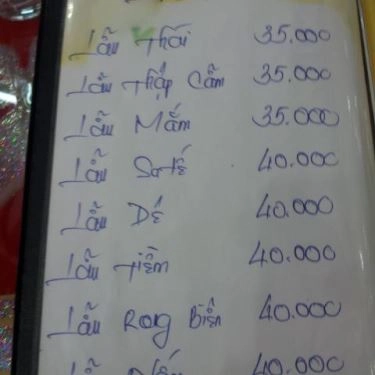 Lẩu Thái 35.000
Lẩu Thập Cẩm 35.000
Lẩu Mắm 35.000
Lẩu Saté 40.000
Lẩu Dê 40.000
Lẩu Tiềm 40.000
Lẩu Rong Biển 40.000
Lẩu 40.000